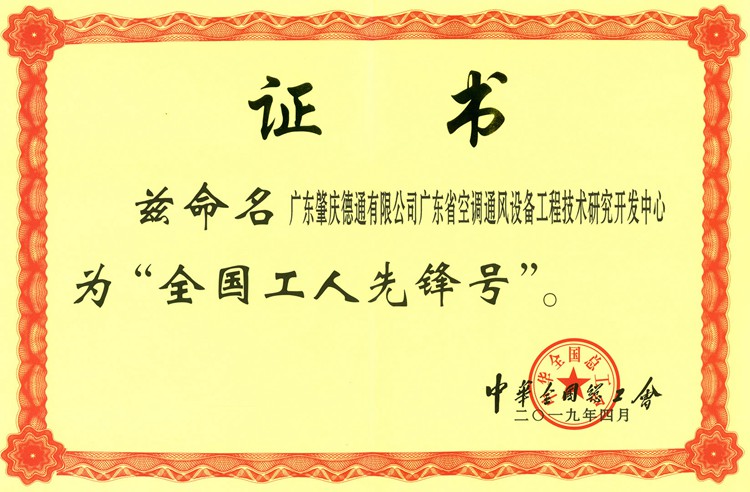 证书
兹命名广东肇庆德通有限公司广东省空调通风设备工程技术研究开发中心
为“全国工人先锋号”。
中华全国总工会
中華全國總工會
二〇一九年四月